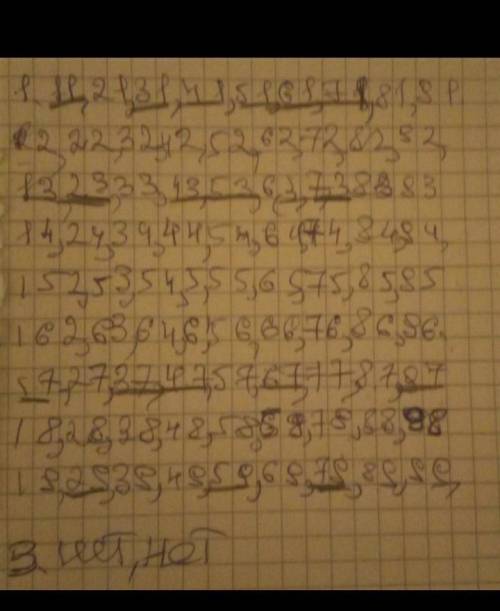 1. 11, 21, 31, 41, 51, 61, 71, 81, 91
12, 22, 32, 42, 52, 62, 72, 82, 92,
13, 23, 33, 43, 53, 63, 73, 83, 93
14, 24, 34, 44, 54, 64, 74, 84, 94,
15, 25, 35, 45, 55, 65, 75, 85, 95
16, 26, 36, 46, 56, 66, 76, 86, 96.
17, 27, 37, 47, 57, 67, 77, 87, 97
18, 28, 38, 48, 58, 68, 78, 88, 98
19, 29, 39, 49, 59, 69, 79, 89, 99,
3. нет, нет